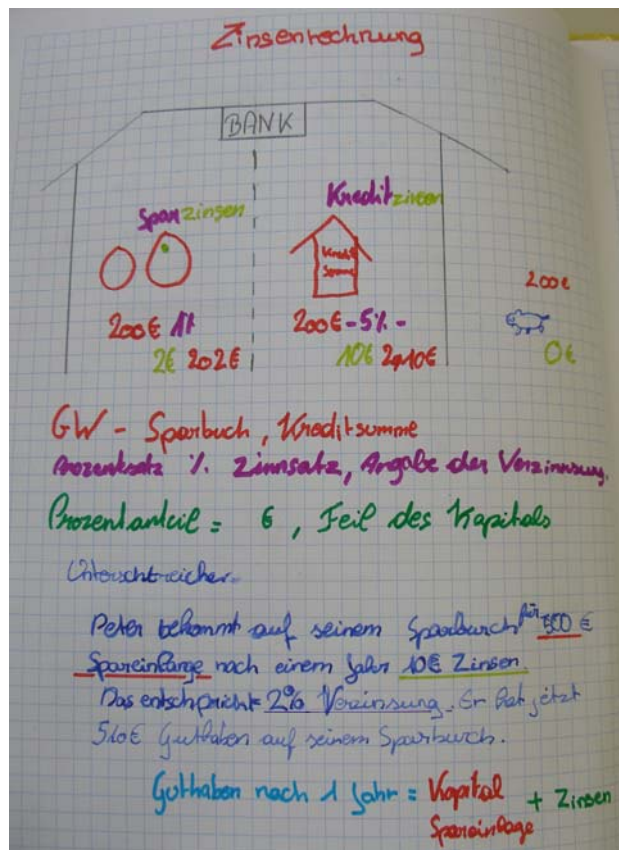 Zinsenrechnung
BANK
Sparzinsen
Kreditzinsen
Kredit
Summe
200€
200€ 1%
200€-5%-
2€ 202€
10€ 210€
0€
GW - Sparbuch, Kreditsumme
Prozentsatz % Zinnsatz, Angabe der Verzinnsung.
Prozentanteil = €, Teil des Kapitals
Unterschtreichen.
Peter bekommt auf seinem Sparburch für 500 €
Spareinlange nach einem Jahr 10€ Zinsen.
Das entschpricht 2% Verzinsung. Er hat jetzt
510€ Guthaben auf seinem Sparburch.
Guthaben nach 1 Jahr = Kapital + Zinsen
Spareinlage